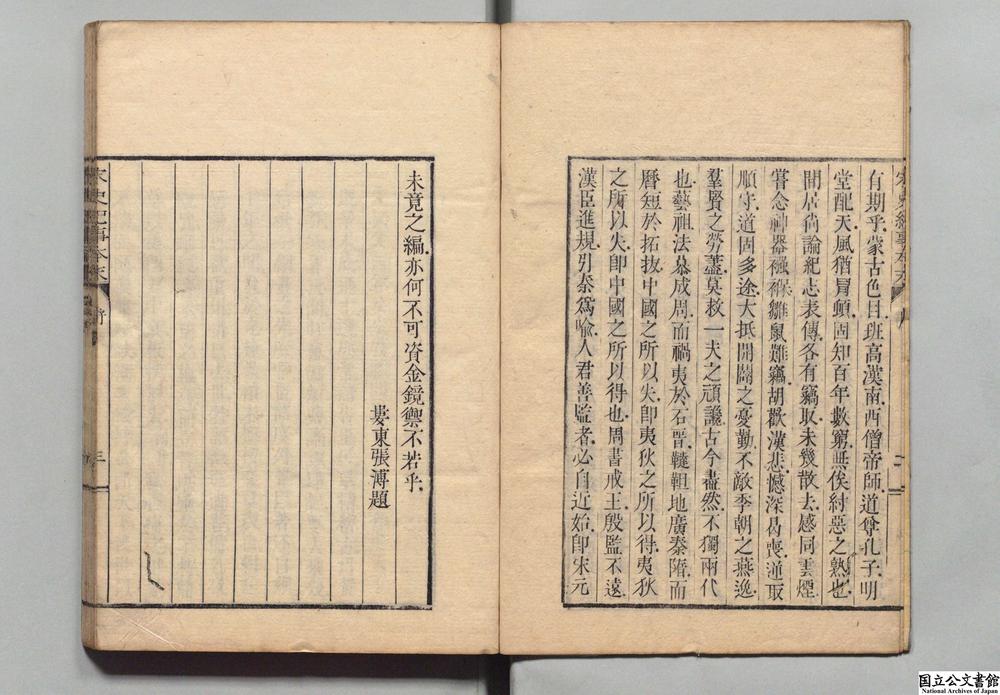 有期乎。蒙古色目。班高漢南。西僧帝師。道尊孔子。明
堂配天。風猶冒頓。固知百年數窮。無俟紂惡之熟也。
間居尚論。紀志表傳。各有竊取。未幾散去。感同雲煙。
嘗念神器襁褓。雛鼠難竊。胡歡漢悲。憾深曷喪。逆取
順守。道固多途。大抵開闢之憂勤。不敵季朝之燕逸。
羣賢之勞藎。莫救一夫之頑讒。古今盡然。不獨兩代
也。藝祖法慕成周。而禍夷於石晉。韃靼地廣秦隋。而
曆短於拓拔。中國之所以失。卽夷狄之所以得。夷狄
之所以失。卽中國之所以得也。周書戒王。殷監不遠。
漢臣進規。引秦爲喻。人君善監者。必自近始。卽宋元
宋史紀事本末
二
未竟之編。亦何不可資金鏡禦不若乎。
婁東張溥題
宋史紀事本末
三